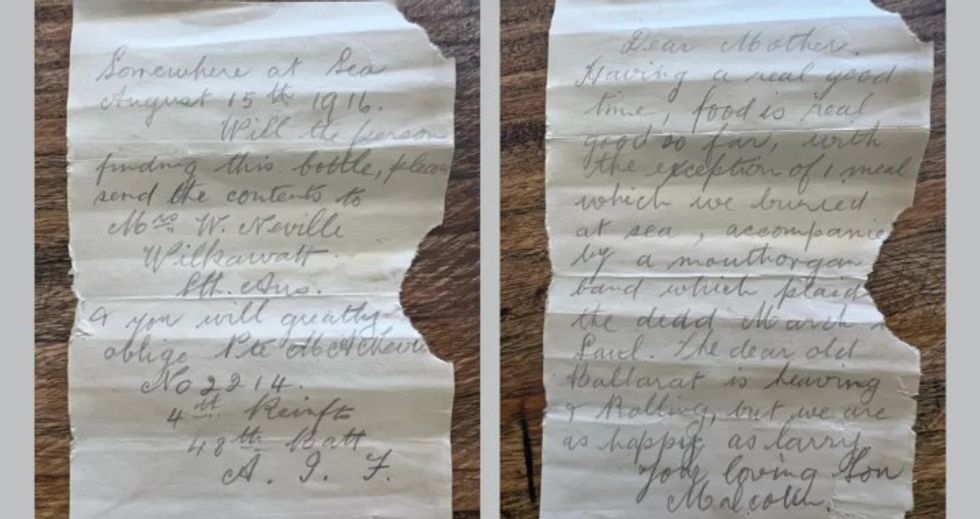 Somewhere at Sea
August 15th 1916.
Will the person
finding this bottle, please
send the contents to
Mrs W. Neville
Wilkawatt.
Sth. Aus.
& you will greatly
oblige Pte M A
No 2214.
4th Reinfts
48th Batt
A. I. F.
Dear Mother.
Having a real good
time, food is real
good so far, with
the exception of 1 meal
which we buried
at sea, accompanie
by a mouthorgan
band which plaid
the dead March
Saul. The dear old
Ballarat is heaving
& Rolling, but we are
as happy as larry.
Your loving Son
Malcolm.